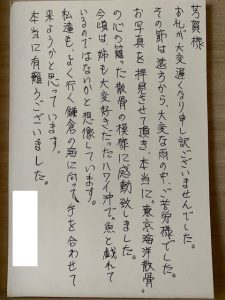 芳賀様
お礼が大変遅くなり申し訳ございませんでした。
その節は遠方から、大変な雨の中、ご苦労様でした。
お写真を拝見させて頂き、本当に、東京海洋散骨
の心の籠った散骨の模様に感動致しました。
今頃は姉も大変好きだったハワイ沖で、魚と戯れて
いるのではないかと想像しています。
私達も、よく行く鎌倉の海に向って、手を合わせて
来ようかと思っています。
本当に有難うございました。